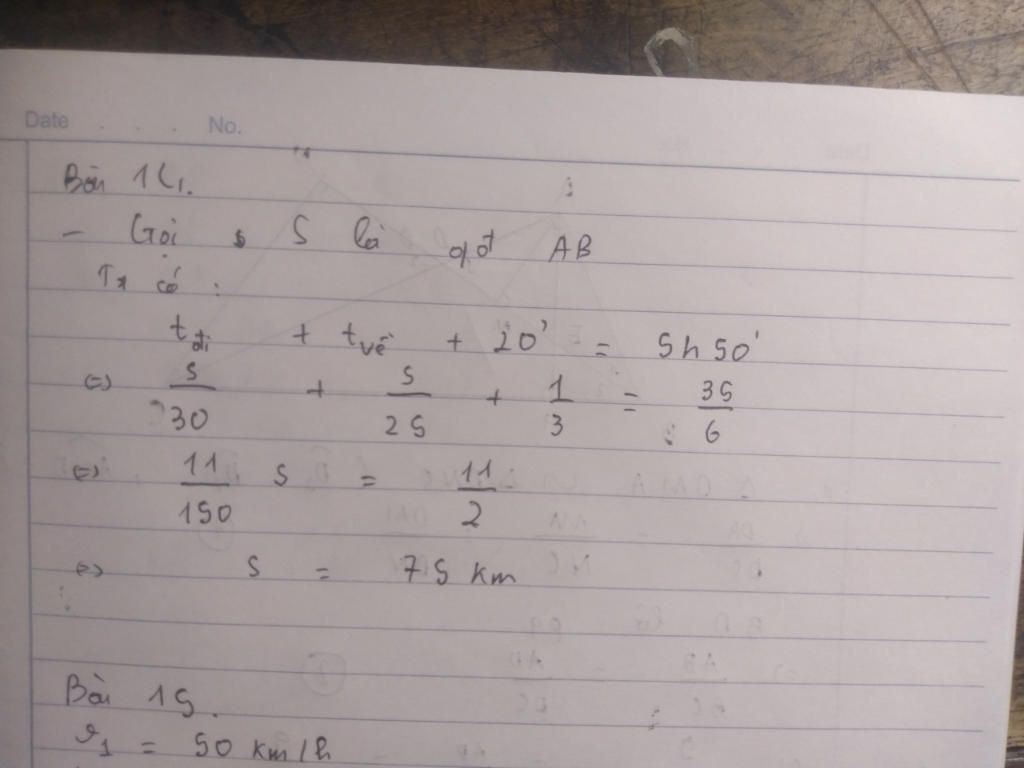 Date . . . . No.
Bài 14.
- Gọi S là qđ AB
Ta có :
t đi + t về + 20' = 5h50'
(=) s/30 + s/25 + 1/3 = 35/6
(=) 11/150 s = 11/2
(=) s = 75 km
Bài 15.
v1 = 50 km/h